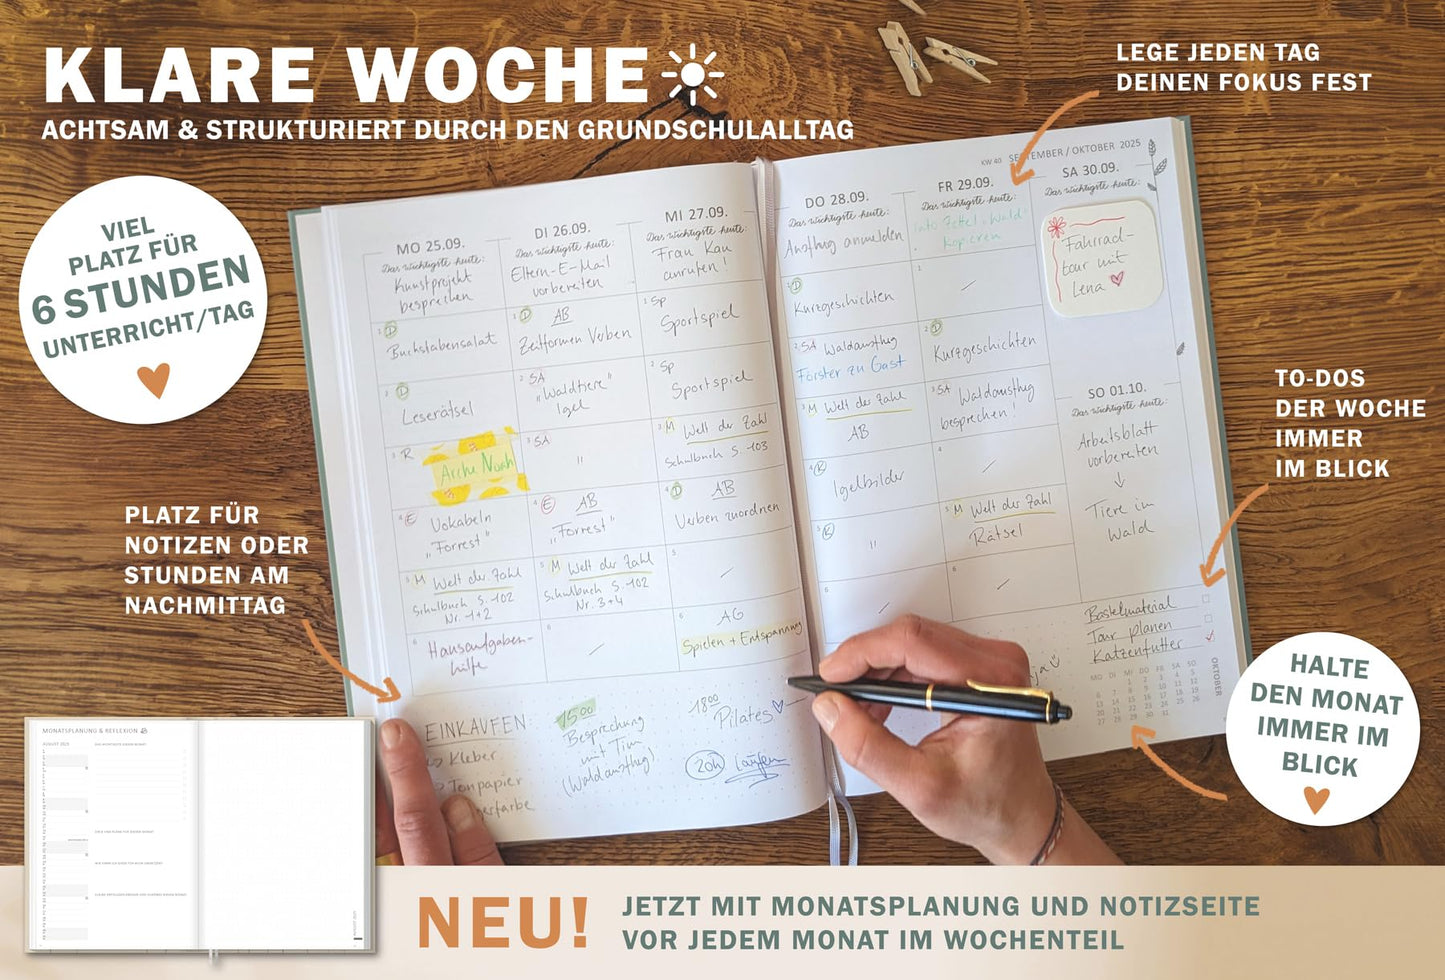 KLARE WOCHE
ACHTSAM & STRUKTURIERT DURCH DEN GRUNDSCHULALLTAG
LEGE JEDEN TAG
DEINEN FOKUS FEST
VIEL
PLATZ FÜR
6 STUNDEN
UNTERRICHT/TAG
PLATZ FÜR
NOTIZEN ODER
STUNDEN AM
NACHMITTAG
TO-DOS
DER WOCHE
IMMER
IM BLICK
HALTE
DEN MONAT
IMMER IM
BLICK
KW 40 SEPTEMBER / OKTOBER 2025
MO 25.09.
Das wichtigste heute:
Kunstprojekt
besprechen
1 D
Buchstabensalat
2 D
Leserätsel
3 R
Arche Noah
4 E Vokabeln
"Forrest"
5 M Welt der Zahl
Schulbuch S. 102
Nr. 1+2
6 Hausaufgaben-
hilfe
DI 26.09.
Das wichtigste heute:
Eltern-E-Mail
vorbereiten
1 D AB
Zeitformen Verben
2 SA
"Waldtiere"
Igel
3 SA
"
4 E AB
"Forrest"
5 M Welt der Zahl
Schulbuch S. 102
Nr. 3+4
6
MI 27.09.
Das wichtigste heute:
Frau Kau
anrufen!
1 Sp
Sportspiel
2 Sp
Sportspiel
3 M Welt der Zahl
Schulbuch S. 103
4 D AB
Verben zuordnen
5
6 AG
Spielen + Entspannung
DO 28.09.
Das wichtigste heute:
Ausflug anmelden
1 D
Kurzgeschichten
2 SA Waldausflug
Förster zu Gast
3 M Welt der Zahl
AB
4 K
Igelbilder
5 K
"
6
FR 29.09.
Das wichtigste heute:
Info Zettel "Wald"
kopieren
1
2 D
Kurzgeschichten
3 SA Waldausflug
besprechen!
4
5 M Welt der Zahl
Rätsel
6
SA 30.09.
Das wichtigste heute:
Fahrrad-
tour mit
Lena
SO 01.10.
Das wichtigste heute:
Arbeitsblatt
vorbereiten
Tiere im
Wald
Bastelmaterial
Tour planen
Katzenfutter
EINKAUFEN:
Kleber
Tonpapier
1500
Besprechung
mit Tim
(Waldausflug)
1800
Pilates
20h laufen
MO DI MI DO FR SA SO
1 2 3 4 5
6 7 8 9 10 11 12
13 14 15 16 17 18 19
20 21 22 23 24 25 26
27 28 29 30 31
OKTOBER
MONATSPLANUNG & REFLEXION
AUGUST 2025
NEU!
JETZT MIT MONATSPLANUNG UND NOTIZSEITE
VOR JEDEM MONAT IM WOCHENTEIL